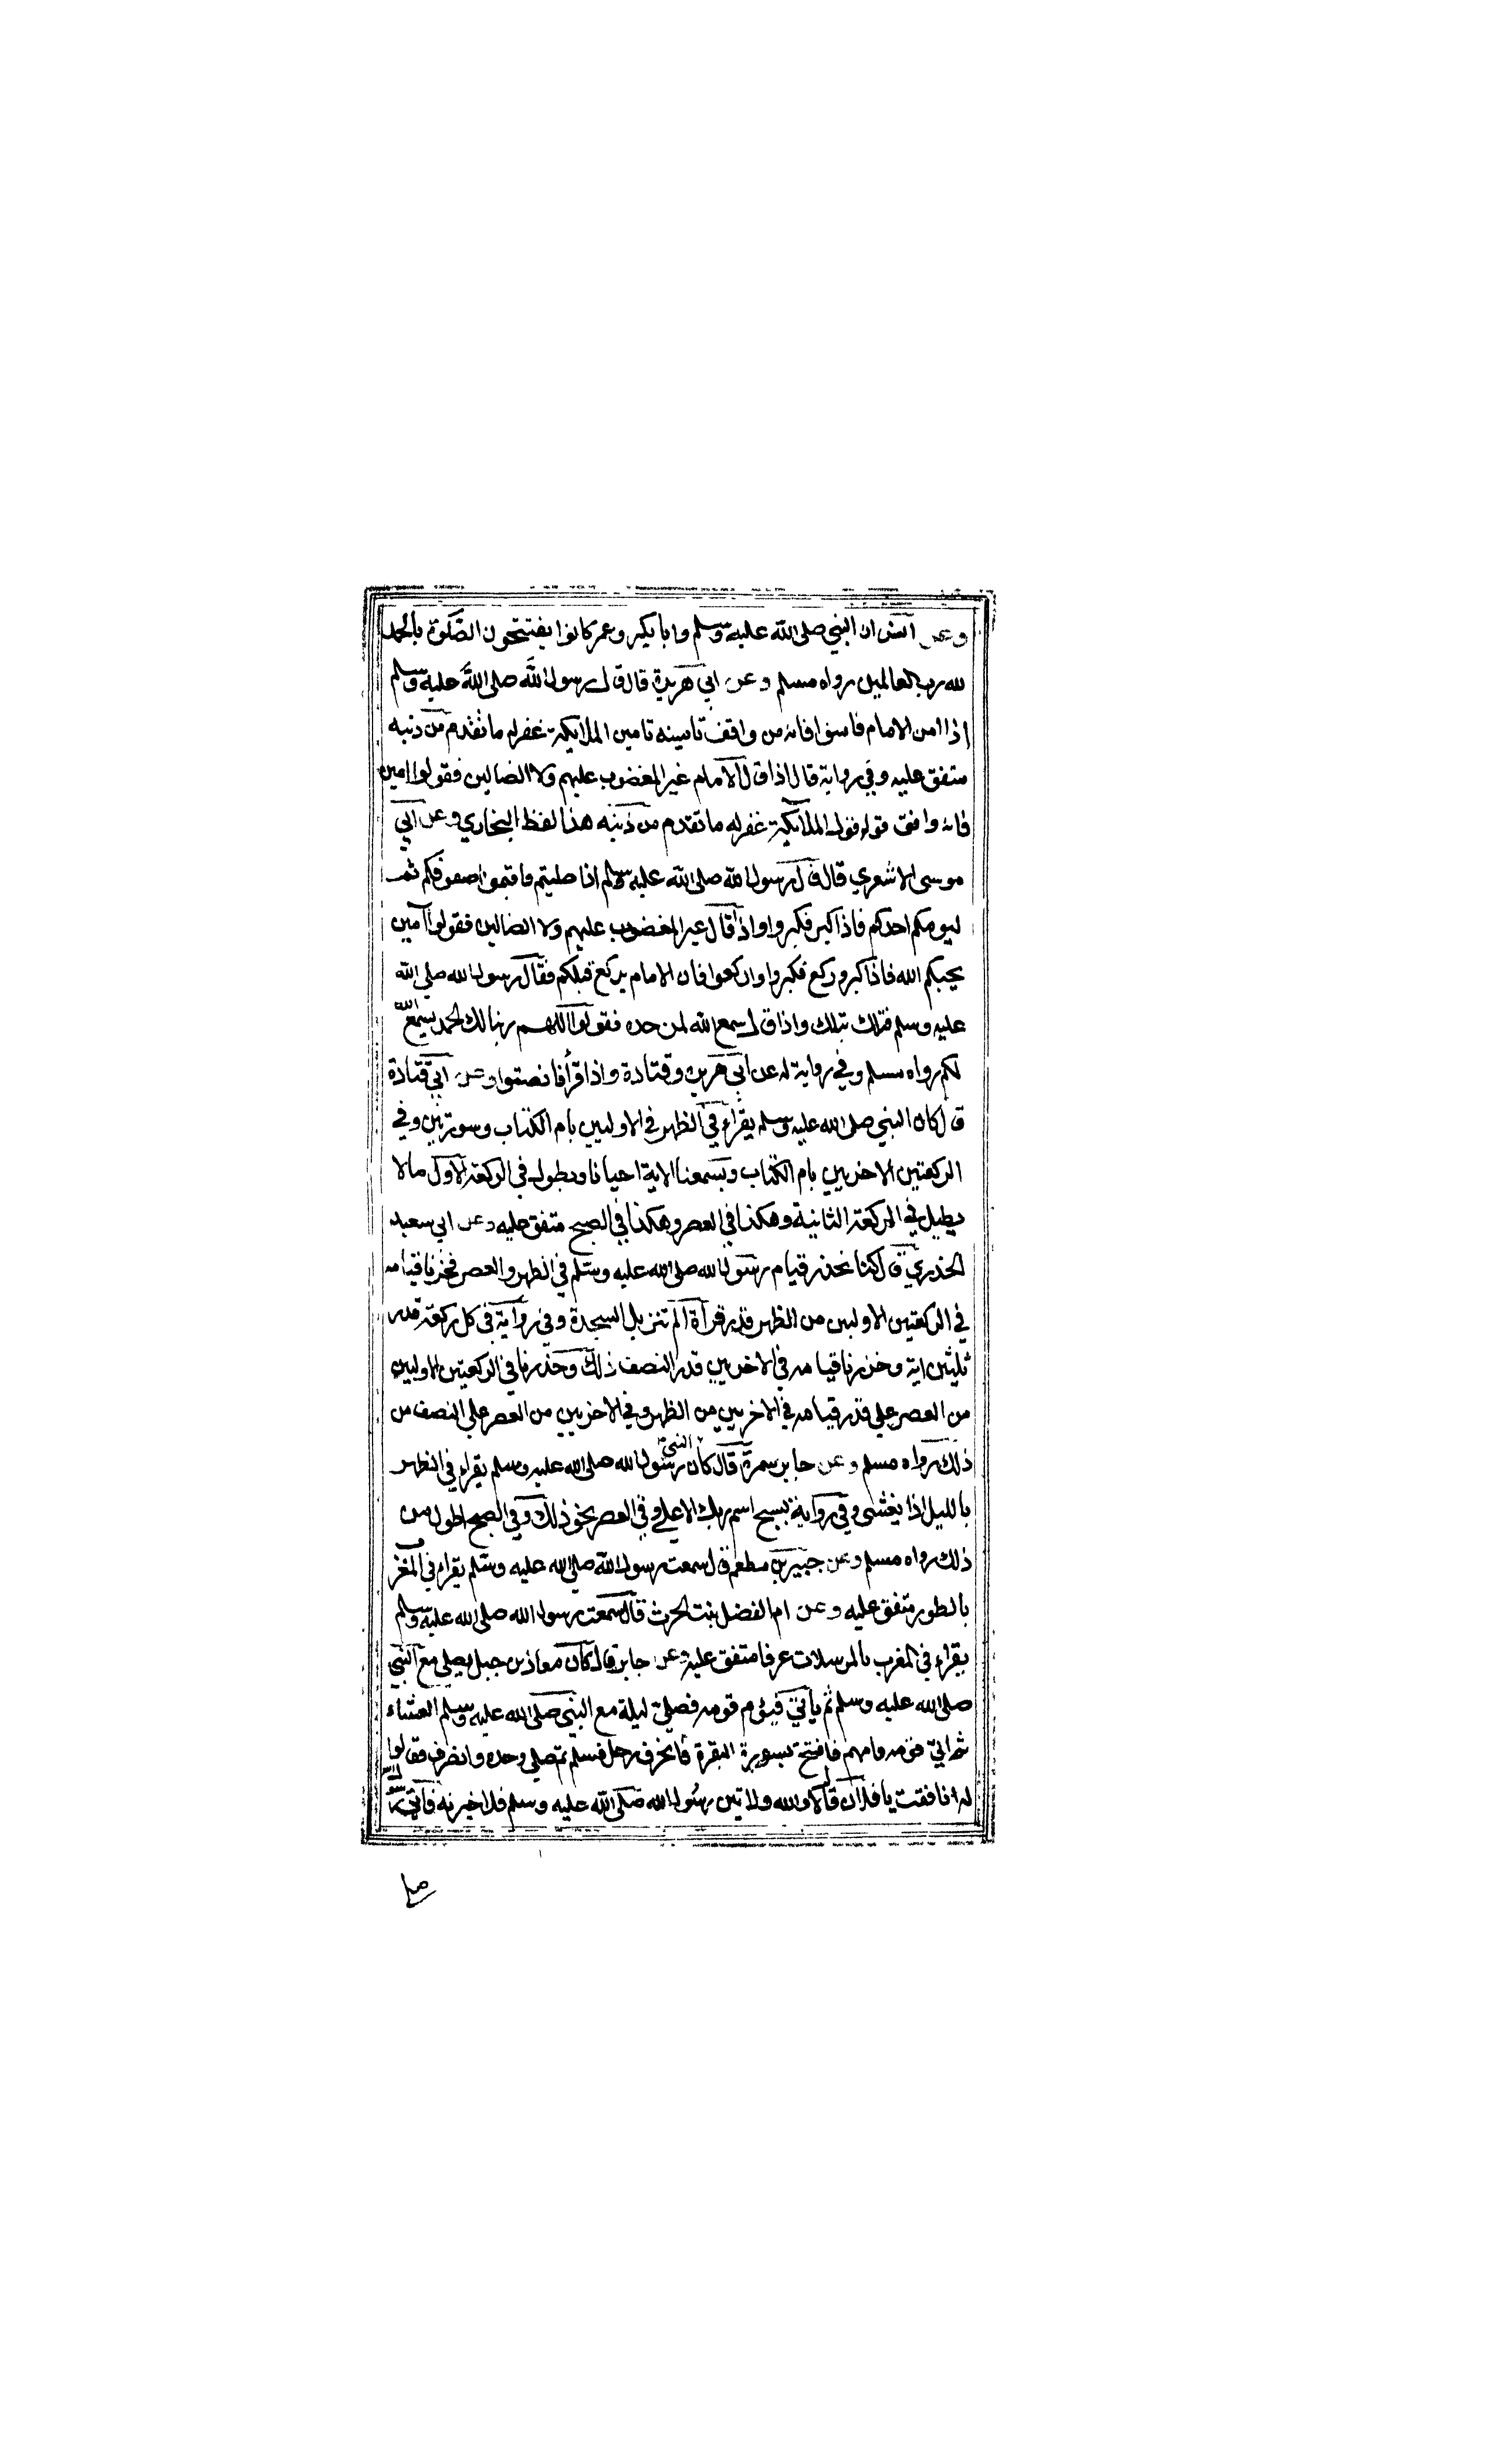 وعن انس ان النبي صلى الله عليه وسلم وابا بكر وعمر كانوا يفتتحون الصلوة بالحمد
لله رب العالمين رواه مسلم وعن ابي هريرة قال قال رسول الله صلى الله عليه وسلم
اذا امن الامام فامنوا فانه من وافق تامينه تامين الملايكة غفر له ما تقدم من ذنبه
متفق عليه وفي رواية قال اذا قال الامام غير المغضوب عليهم ولا الضالين فقولوا امين
فانه وافق قوله قول الملايكة غفر له ما تقدم من ذنبه هذا لفظ البخاري وعن ابي
موسى الاشعري قال قال رسول الله صلى الله عليه وسلم اذا صليتم فاقيموا صفوفكم ثم
ليومكم احدكم فاذا كبر فكبروا واذا قال غير المغضوب عليهم ولا الضالين فقولوا آمين
يحبكم الله فاذا كبر وركع فكبروا واركعوا فان الامام يركع قبلكم فقال رسول الله صلى الله
عليه وسلم فتلك بتلك واذا قال سمع الله لمن حمده فقولوا اللهم ربنا لك الحمد يسمع الله
لكم رواه مسلم وفي رواية له عن ابي هريرة وقتادة واذا قرأ فانصتوا وعن ابي قتادة
قال كان النبي صلى الله عليه وسلم يقراء في الظهر في الاوليين بام الكتاب وسورتين وفي
الركعتين الاخريين بام الكتاب ويسمعنا الاية احيانا ويطول في الركعة الاولى مالا
يطيل في الركعة الثانية وهكذا في العصر وهكذا في الصبح متفق عليه وعن ابي سعيد
الخدري قال كنا نحذر قيام رسول الله صلى الله عليه وسلم في الظهر والعصر فحزرنا قيامه
في الركعتين الاوليين من الظهر قدر قرآة الم تنزيل السجدة وفي رواية في كل ركعة قدر
ثلثين اية وحزرنا قيامه في الاخريين قدر النصف ذلك وحذرنا في الركعتين الاوليين
من العصر على قدر قيامه في الاخريين من الظهر وفي الاخريين من العصر على النصف من
ذلك رواه مسلم وعن جابر سمرة قال كان النبي رسول الله صلى الله عليه وسلم يقراء في الظهر
بالليل اذا يغشى وفي رواية بسبح اسم ربك الاعلى وفي العصر نحو ذلك وفي الصبح اطول من
ذلك رواه مسلم وعن جبير بن مطعم قال سمعت رسول الله صلى الله عليه وسلم يقراء في المغرب
بالطور متفق عليه وعن ام الفضل بنت الحرث قال سمعت رسول الله صلى الله عليه وسلم
يقراء في المغرب بالمرسلات عرفا متفق عليه وعن جابر قال كان معاذ بن جبل يصلي مع النبي
صلى الله عليه وسلم ثم ياتي فيئوم قومه فصلى ليلة مع النبي صلى الله عليه وسلم العشاء
ثم اتى قومه وامهم فافتتح بسورة البقرة فانحرف رجل فسلم ثم صلى وحده وانصرف فقالوا
له انافقت يا فلان قال لا والله ولاتين رسول الله صلى الله عليه وسلم فلاخبرنه فاتى رسول الله
صلى